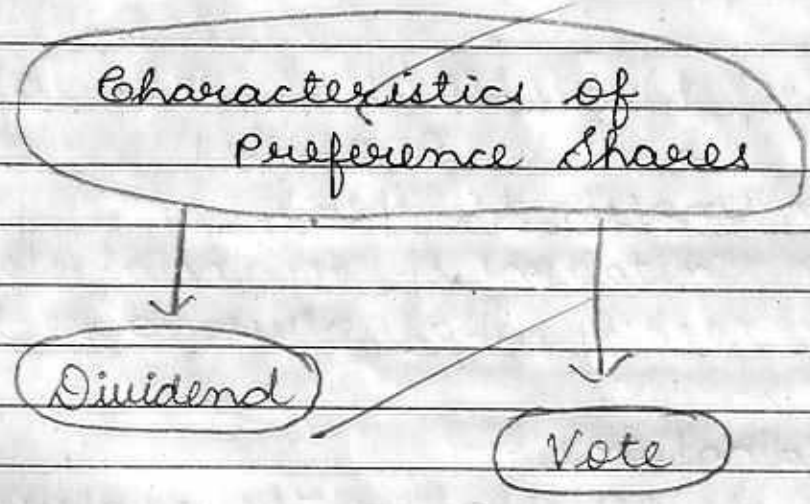 Characteristics of
Preference Shares
Dividend
Vote